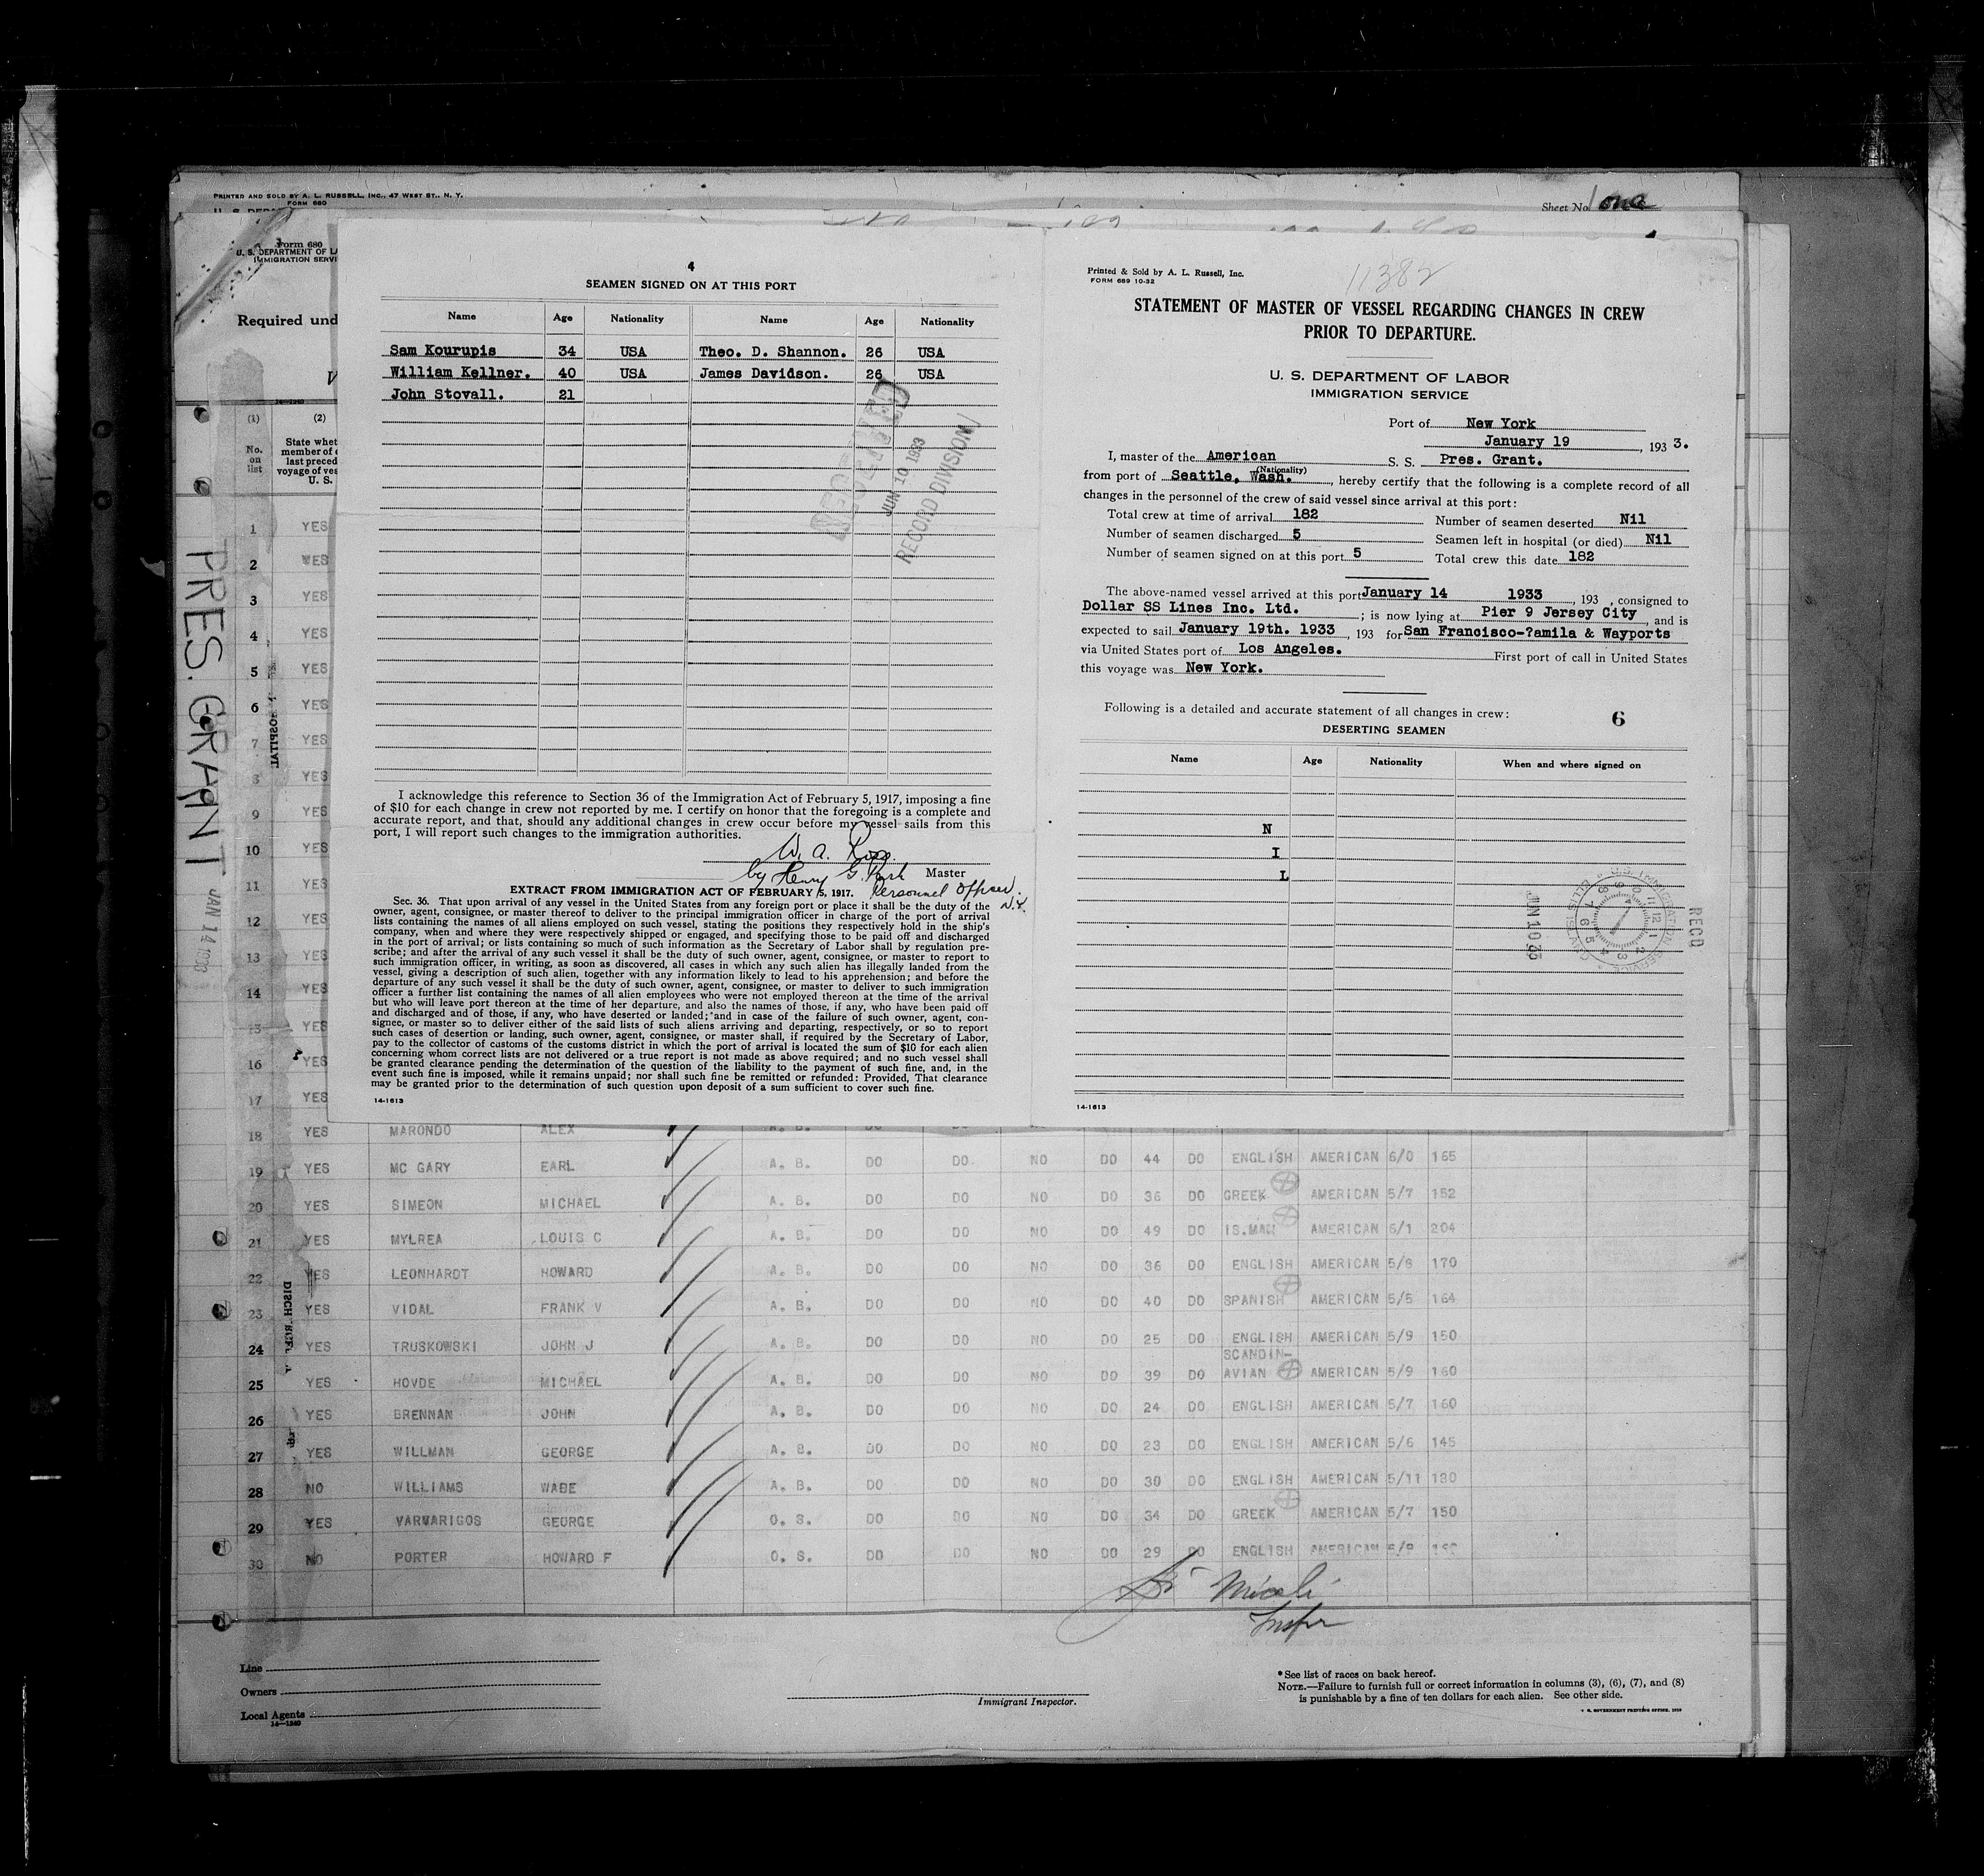 PRINTED AND SOLD BY A. L. RUSSELL, INC., 47 WEST ST., N. Y.
FORM 680
Sheet No. One
Form 680
U. S. DEPARTMENT OF LA
IMMIGRATION SERVI
Required und
(1) (2)
No. on list
State whet
member of
last preced
voyage of ves
U. S.
PRES. GRANT JAN 14 1933
4
SEAMEN SIGNED ON AT THIS PORT
Name Age Nationality Name Age Nationality
Sam Kourupis 34 USA Theo. D. Shannon. 26 USA
William Kellner. 40 USA James Davidson. 26 USA
John Stovall. 21
RECEIVED
JUN 10 1933
RECORD DIVISION
I acknowledge this reference to Section 36 of the Immigration Act of February 5, 1917, imposing a fine
of $10 for each change in crew not reported by me. I certify on honor that the foregoing is a complete and
accurate report, and that, should any additional changes in crew occur before my vessel sails from this
port, I will report such changes to the immigration authorities.
W. A. Ross
by Henry G. Master
Personnel Officer
N.Y.
EXTRACT FROM IMMIGRATION ACT OF FEBRUARY 5, 1917.
Sec. 36. That upon arrival of any vessel in the United States from any foreign port or place it shall be the duty of the
owner, agent, consignee, or master thereof to deliver to the principal immigration officer in charge of the port of arrival
lists containing the names of all aliens employed on such vessel, stating the positions they respectively hold in the ship's
company, when and where they were respectively shipped or engaged, and specifying those to be paid off and discharged
in the port of arrival; or lists containing so much of such information as the Secretary of Labor shall by regulation pre-
scribe; and after the arrival of any such vessel it shall be the duty of such owner, agent, consignee, or master to report to
such immigration officer, in writing, as soon as discovered, all cases in which any such alien has illegally landed from the
vessel, giving a description of such alien, together with any information likely to lead to his apprehension; and before the
departure of any such vessel it shall be the duty of such owner, agent, consignee, or master to deliver to such immigration
officer a further list containing the names of all alien employees who were not employed thereon at the time of the arrival
but who will leave port thereon at the time of her departure, and also the names of those, if any, who have been paid off
and discharged and of those, if any, who have deserted or landed; and in case of the failure of such owner, agent, con-
signee, or master so to deliver either of the said lists of such aliens arriving and departing, respectively, or so to report
such cases of desertion or landing, such owner, agent, consignee, or master shall, if required by the Secretary of Labor,
pay to the collector of customs of the customs district in which the port of arrival is located the sum of $10 for each alien
concerning whom correct lists are not delivered or a true report is not made as above required; and no such vessel shall
be granted clearance pending the determination of the question of the liability to the payment of such fine, and, in the
event such fine is imposed, while it remains unpaid; nor shall such fine be remitted or refunded: Provided, That clearance
may be granted prior to the determination of such question upon deposit of a sum sufficient to cover such fine.
14-1613
Printed & Sold by A. L. Russell, Inc.
FORM 689 10-32
11382
STATEMENT OF MASTER OF VESSEL REGARDING CHANGES IN CREW
PRIOR TO DEPARTURE.
U. S. DEPARTMENT OF LABOR
IMMIGRATION SERVICE
Port of New York
January 19, 193 3.
I, master of the American S. S. Pres. Grant.
(Nationality)
from port of Seattle, Wash., hereby certify that the following is a complete record of all
changes in the personnel of the crew of said vessel since arrival at this port:
Total crew at time of arrival 182 Number of seamen deserted Nil
Number of seamen discharged 5 Seamen left in hospital (or died) Nil
Number of seamen signed on at this port 5 Total crew this date 182
The above-named vessel arrived at this port January 14 1933, 193 , consigned to
Dollar SS Lines Inc. Ltd. ; is now lying at Pier 9 Jersey City, and is
expected to sail January 19th. 1933, 193 for San Francisco-?amila & Wayports
via United States port of Los Angeles. First port of call in United States
this voyage was New York.
Following is a detailed and accurate statement of all changes in crew: 6
DESERTING SEAMEN
Name Age Nationality When and where signed on
N
I
L
RECD
JUN 10 33
U. S. IMMIGRATION SERVICE
14-1613
1 YES
2 YES
3 YES
4 YES
5 YES
6 YES
7 YES
8 YES
9 YES
10 YES
11 YES
12 YES
13 YES
14 YES
15 YES
16 YES
17 YES
18 YES MARONDO ALEX A. B.
19 YES MC GARY EARL A. B. DO DO NO DO 44 DO ENGLISH AMERICAN 6/0 165
20 YES SIMEON MICHAEL A. B. DO DO NO DO 36 DO GREEK AMERICAN 5/7 152
21 YES MYLREA LOUIS C A. B. DO DO NO DO 49 DO IS.MAN AMERICAN 6/1 204
22 YES LEONHARDT HOWARD A. B. DO DO NO DO 36 DO ENGLISH AMERICAN 5/8 170
23 YES VIDAL FRANK V A. B. DO DO NO DO 40 DO SPANISH AMERICAN 5/5 164
24 YES TRUSKOWSKI JOHN J A. B. DO DO NO DO 25 DO ENGLISH AMERICAN 5/9 150
25 YES HOVDE MICHAEL A. B. DO DO NO DO 39 DO SCANDIN-AVIAN AMERICAN 5/9 160
26 YES BRENNAN JOHN A. B. DO DO NO DO 24 DO ENGLISH AMERICAN 5/7 160
27 YES WILLMAN GEORGE A. B. DO DO NO DO 23 DO ENGLISH AMERICAN 5/6 145
28 NO WILLIAMS WADE A. B. DO DO NO DO 30 DO ENGLISH AMERICAN 5/11 180
29 YES VARVARIGOS GEORGE O. S. DO DO NO DO 34 DO GREEK AMERICAN 5/7 150
30 NO PORTER HOWARD F O. S. DO DO NO DO 29 DO ENGLISH AMERICAN
Line
Owners
Local Agents
14-1240
Immigrant Inspector.
*See list of races on back hereof.
NOTE.—Failure to furnish full or correct information in columns (3), (6), (7), and (8)
is punishable by a fine of ten dollars for each alien. See other side.